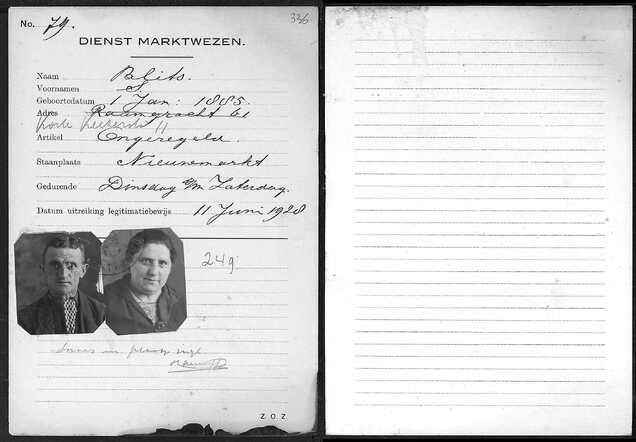 No. 79.
336
DIENST MARKTWEZEN.
Naam Blits.
Voornamen S
Geboortedatum 1 Jan: 1885.
Adres Raamgracht 61
Korte 11
Artikel Ongeregeld.
Staanplaats Nieuwmarkt
Gedurende Dinsdag t/m Zaterdag.
Datum uitreiking legitimatiebewijs 11 Juni 1928
249
in plaats
Z. O. Z.